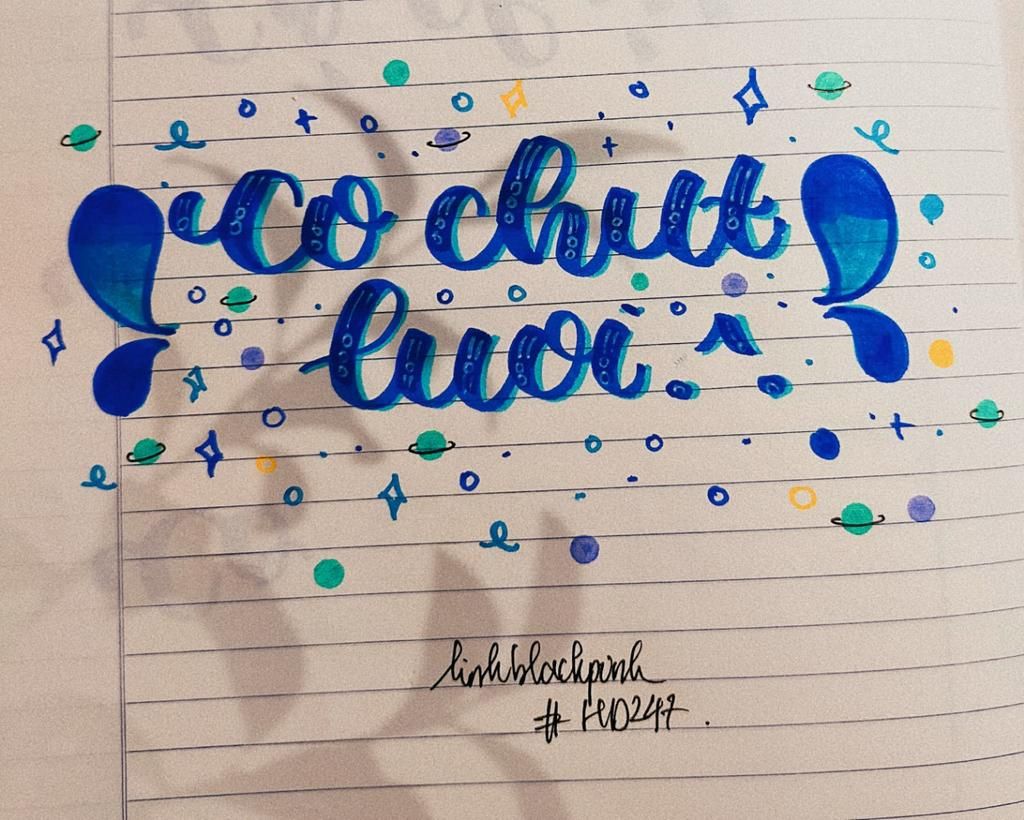 Co chut
luoi . ^ .
linhblackpink
# HD247 .